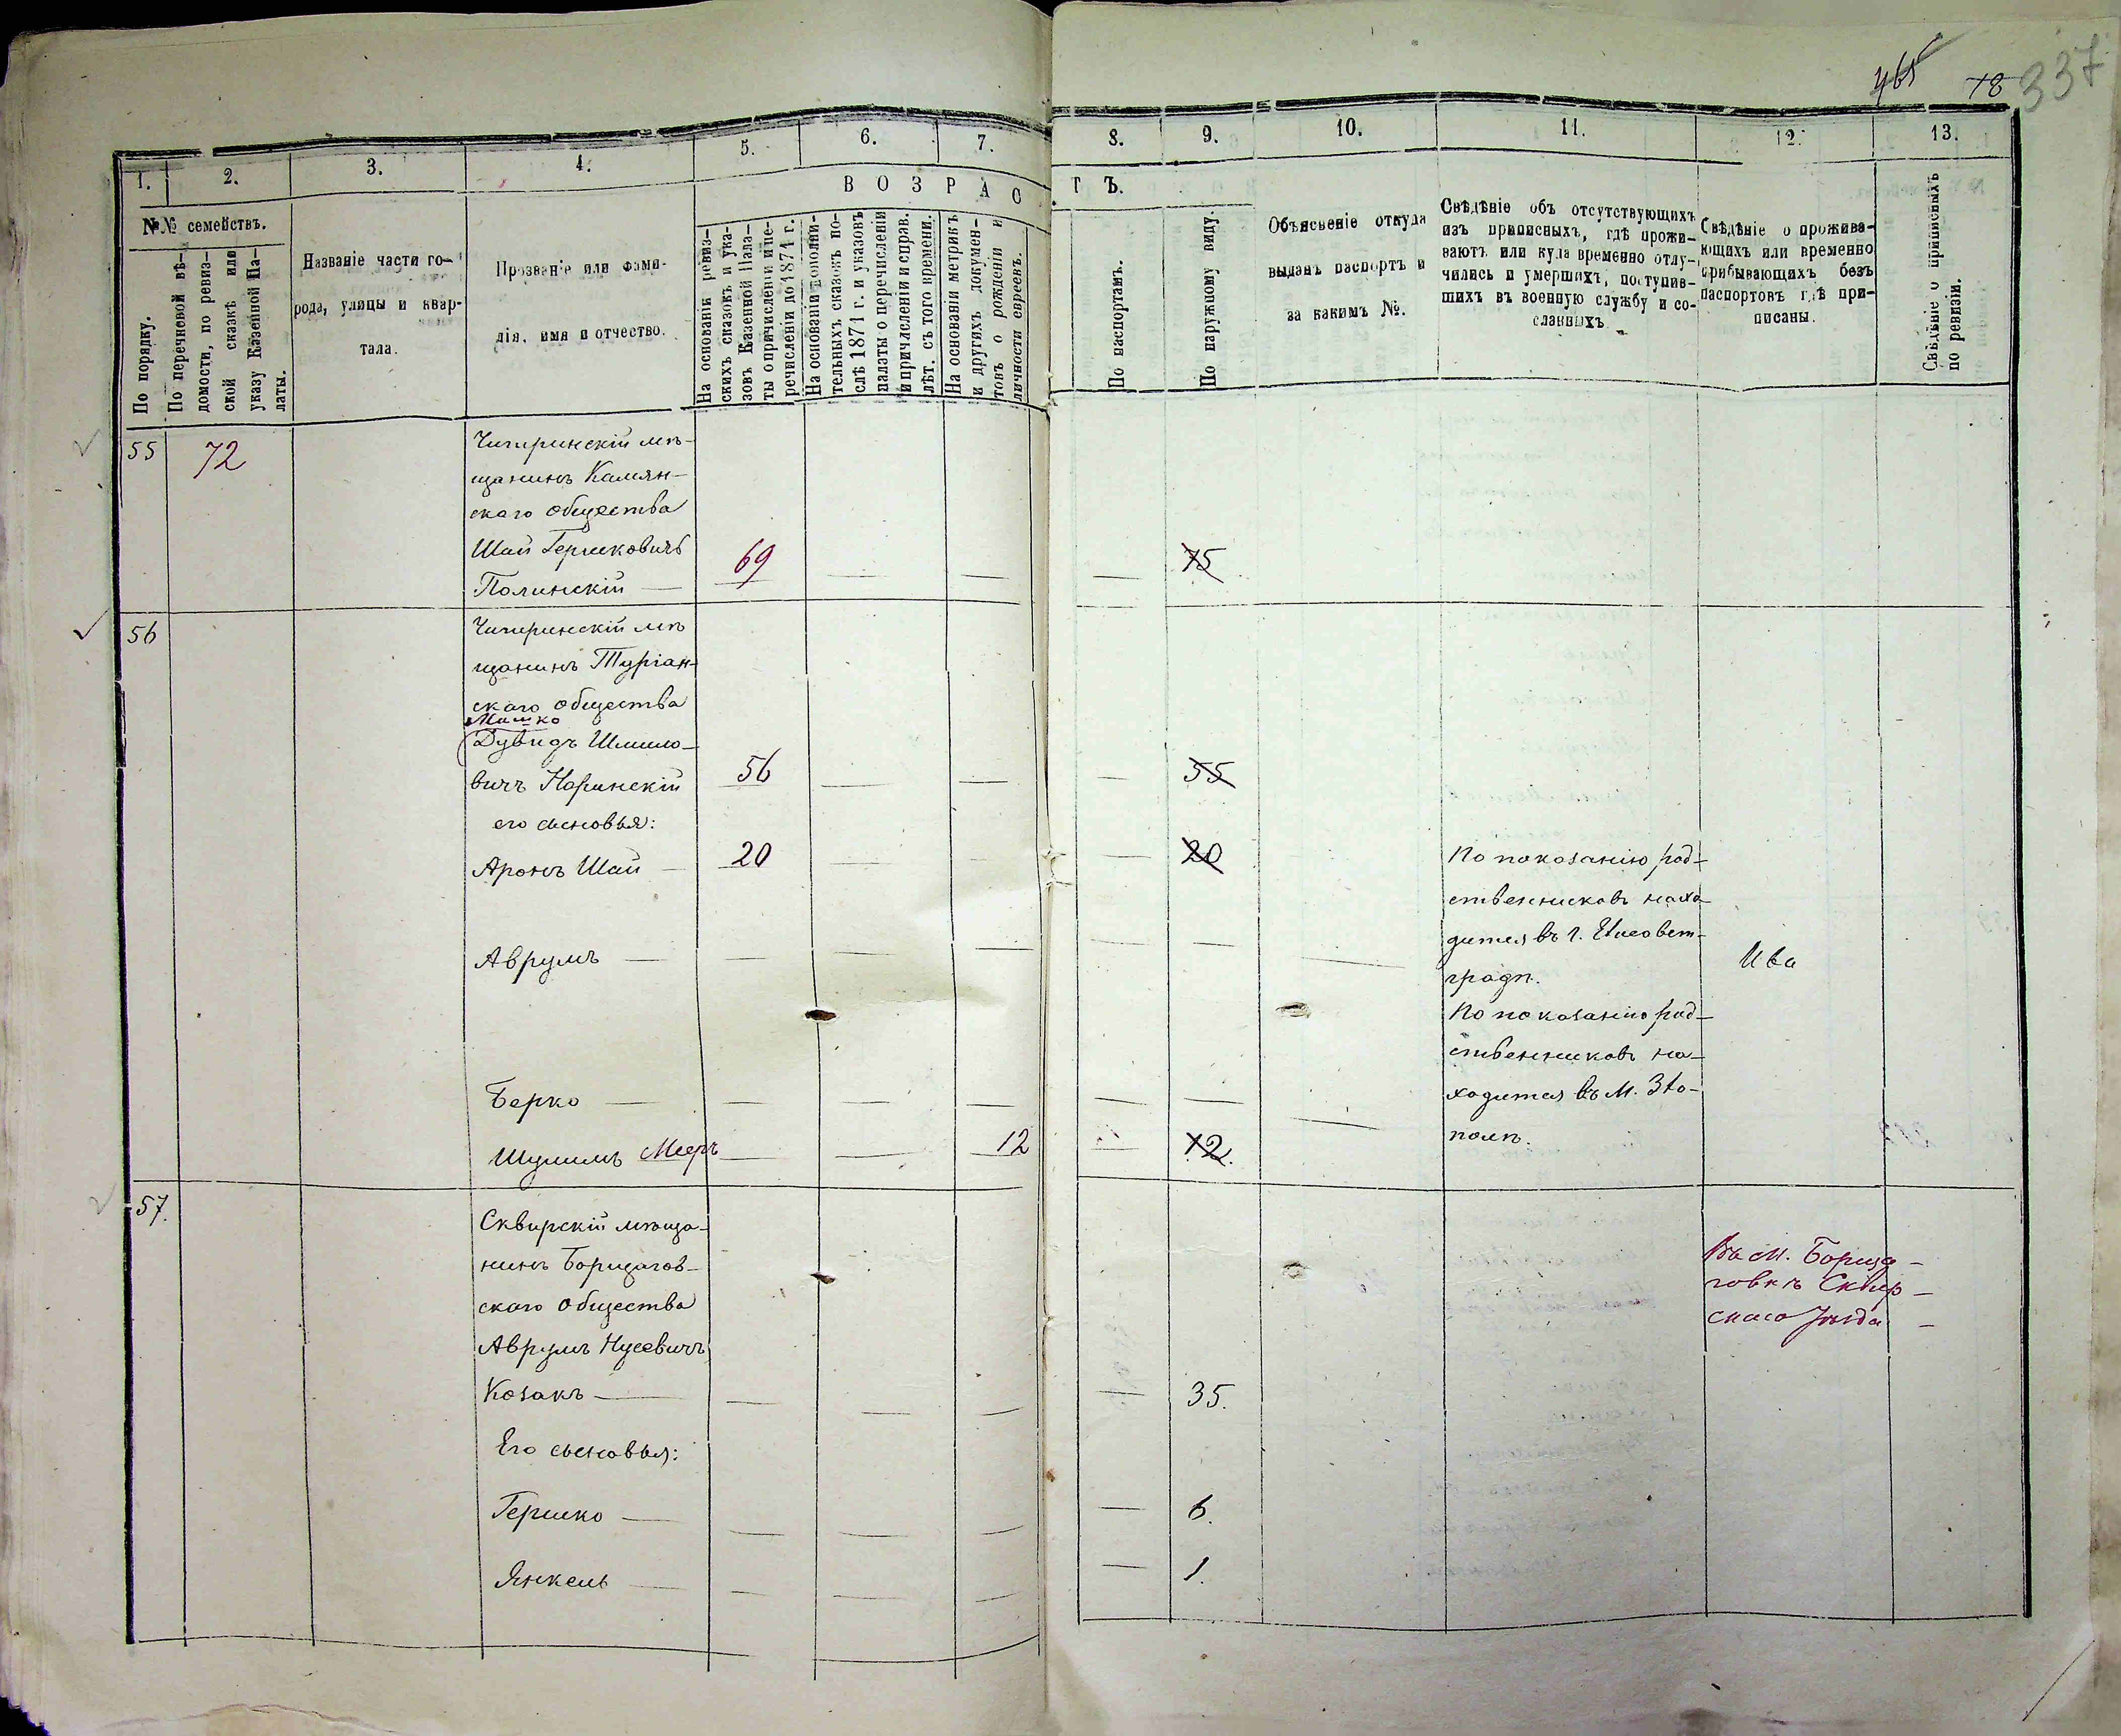 465 78 337
1. 2. 3. 4. 5. 6. 7. 8. 9. 10. 11. 12. 13.
В О З Р А С Т Ъ.
№№ семействъ.
По порядку.
По перечневой вѣ-
домости, по ревиз-
ской сказкѣ или
указу Казенной Па-
латы.
Названіе части го-
рода, улицы и квар-
тала.
Прозваніе или фами-
лія, имя и отчество.
На основаніи ревиз-
скихъ сказокъ и ука-
зовъ Казенной Пала-
ты о причисленіи и пе-
речисленіи до 1871 г.
На основаніи дополни-
тельныхъ сказокъ по-
слѣ 1871 г. и указовъ
палаты о перечисленіи
и причисленіи и справ.
лѣт. съ того времени.
На основаніи метрикъ
и другихъ докумен-
товъ о рожденіи и
личности евреевъ.
По паспортамъ.
По наружному виду.
Объясненіе откуда
выданъ паспортъ и
за какимъ №.
Свѣдѣніе объ отсутствующихъ
изъ приписныхъ, гдѣ прожи-
ваютъ или куда временно отлу-
чились и умершихъ, поступив-
шихъ въ военную службу и со-
сланныхъ.
Свѣдѣніе о прожива-
ющихъ или временно
прибывающихъ безъ
паспортовъ гдѣ при-
писаны.
Свѣдѣніе о приписныхъ
по ревизіи.
55 72 Чигиринскій мѣ-
щанинъ Камян-
скаго общества
Шай Гершковичъ
Полинскій — 69 — — — 75
56 Чигиринскій мѣ
щанинъ Туріан-
скаго общества
Мошко
Дувидъ Шмило-
вичъ Норинскій 56 — — — 55
его сыновья:
Аронъ Шай — 20 — — — 20
По показанію род-
ственниковъ нахо-
дится въ г. Елисовет-
градѣ.
Аврумъ — — — — — —
По показанію род-
ственниковъ на-
ходится въ м. Зло-
полѣ.
Берко — — — — — —
Шулимъ Мееръ — — 12 — 12.
57. Сквирскій мѣща-
нинъ Борщагов-
скаго общества
Аврумъ Нусевичъ
Козакъ — — — — — 35.
Въ м. Борща-
говкѣ Сквир-
скаго уѣзда
Его сыновья:
Гершко — — — — — 6.
Янкель — — — — — 1.